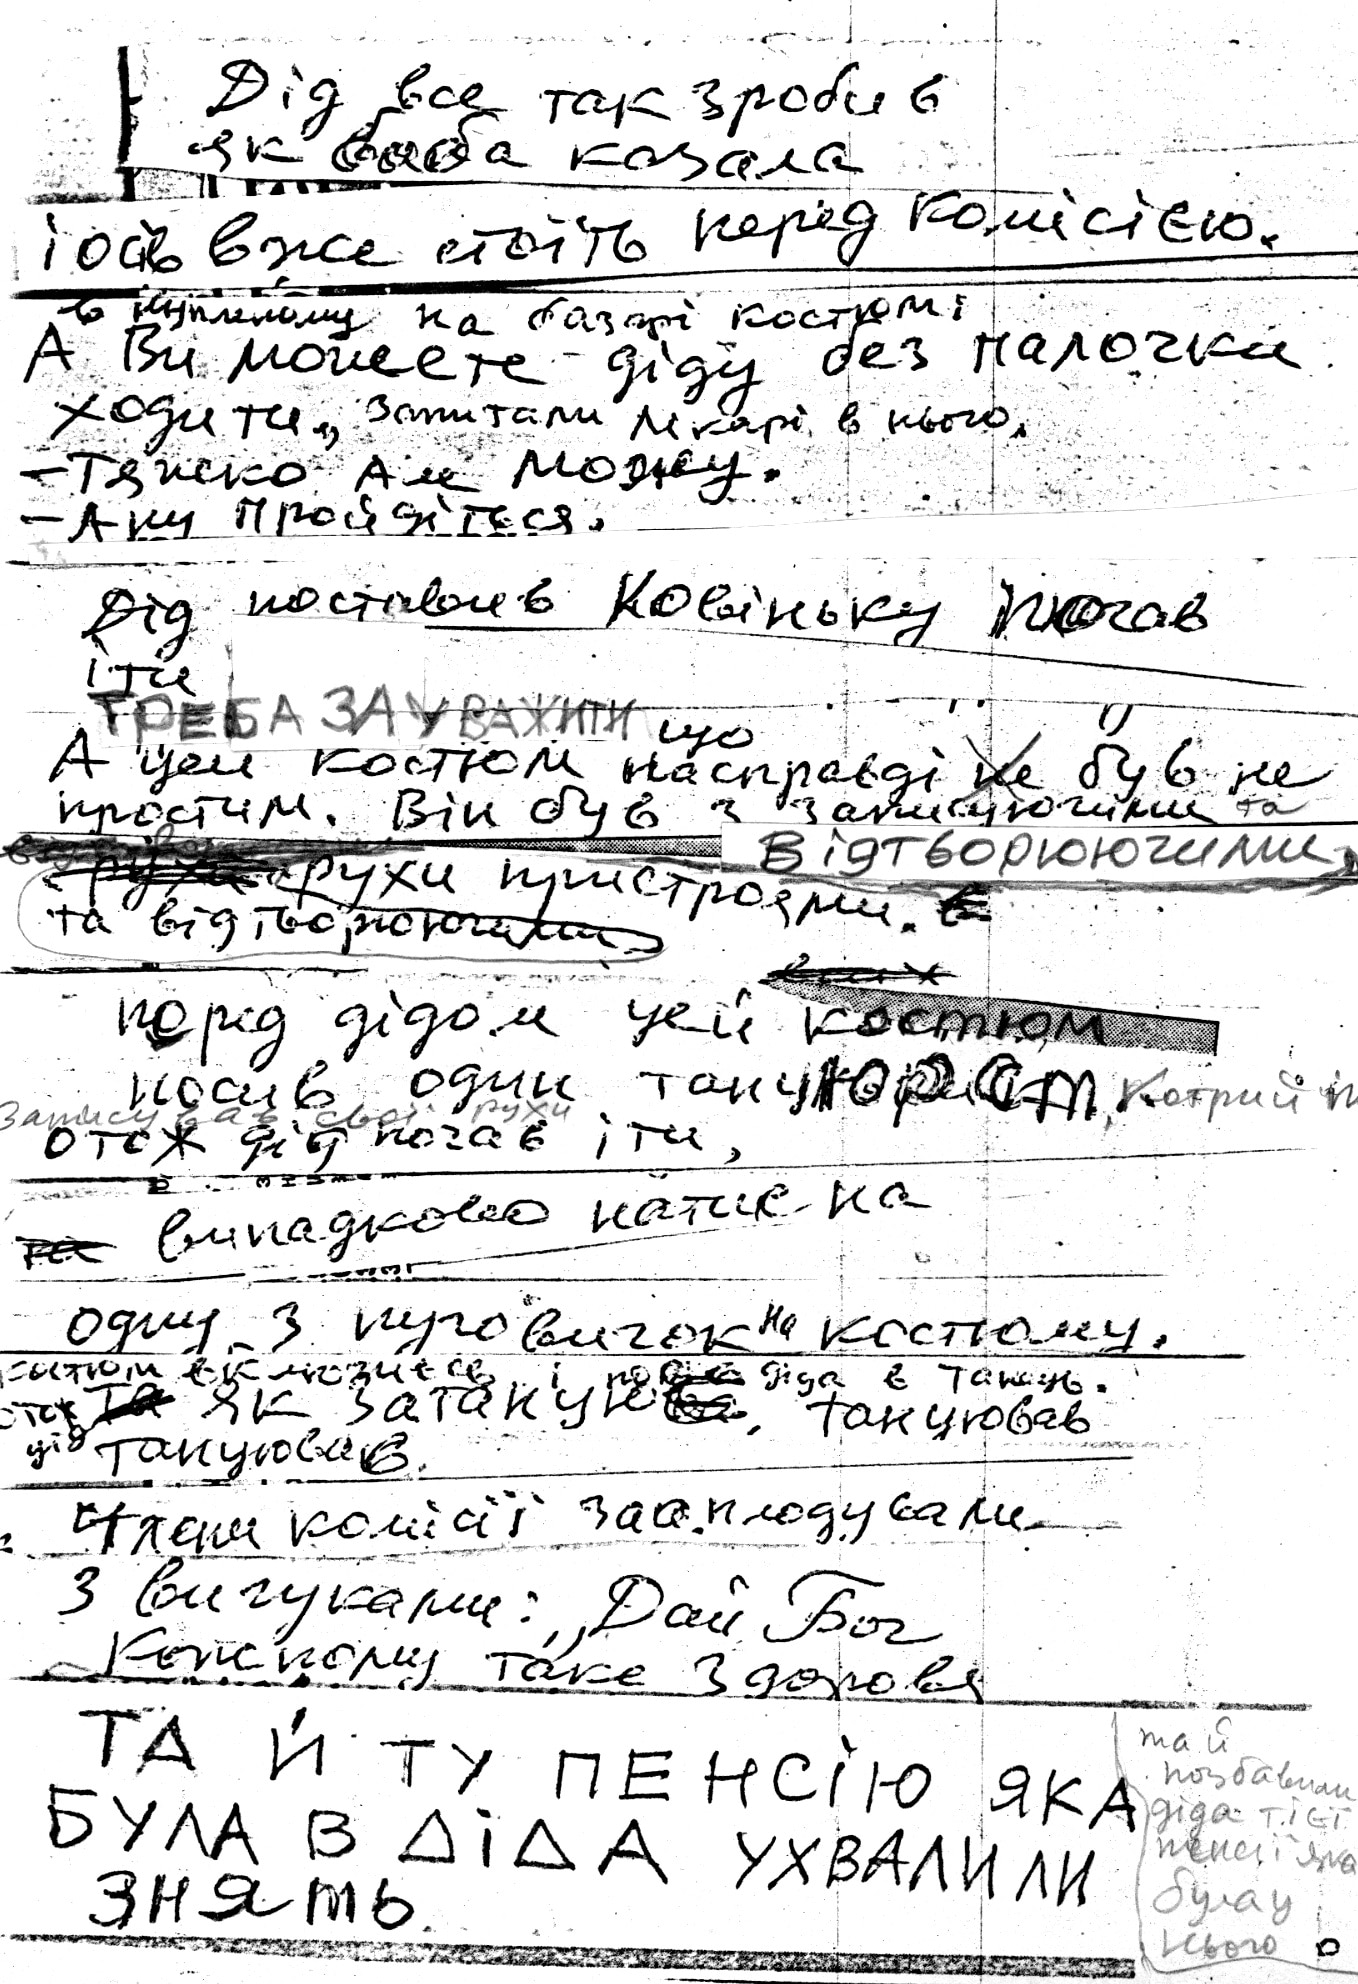 Дід все так зробив
як баба казала
і ось вже стоїть перед комісією.
в купленому на базарі костюмі
А Ви можете діду без палочки
ходити„ запитали лікарі в нього.
– Тяжко але можу.
– Ану пройдіться.
Дід поставив Ковіньку почав
іти
ТРЕБА ЗАУВАЖИТИ що
А цей костюм насправді не був не
простим. Він був з записуючими та
Відтворюючими
рухи рухи пристроями. в
та відтворюючими
всіх
перед дідом цей костюм
носив один танцюрист, Котрий
Записував свої рухи
отож дід почав іти,
та випадково натис на
одну з пуговичок на костюму.
костюм включився і повів діда в танець.
отож та як затанцював, танцював
дід танцював.
Члени комісії зааплодували
з вигуками: „Дай Бог
Кожному таке здоровя
ТА Й ТУ ПЕНСІЮ ЯКА
БУЛА В ДІДА УХВАЛИЛИ
ЗНЯТЬ
та й
позбавили
діда тієї
пенсії яка
була у
нього